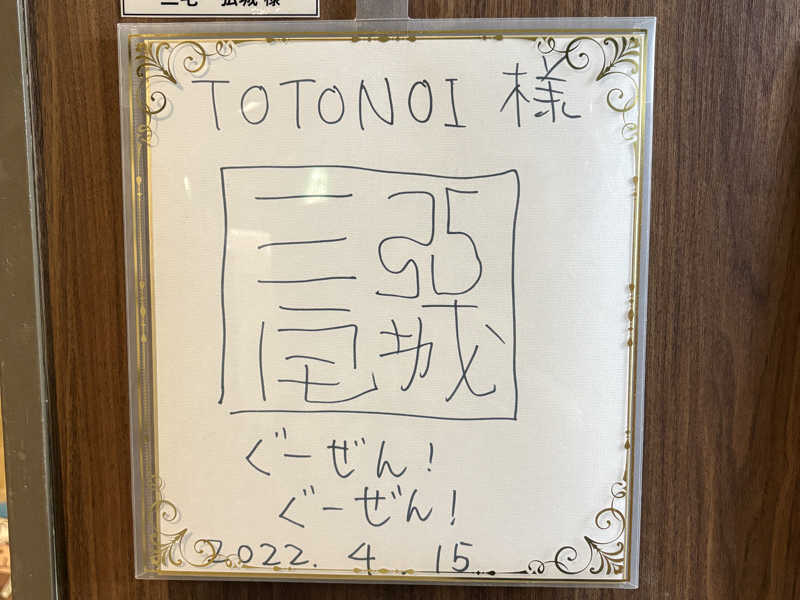 三宅 弘城 様
TOTONOI 様
三宅
弘城
ぐーぜん!
ぐーぜん!
2022. 4. 15